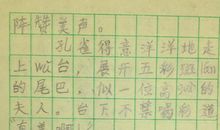 阵赞美声。
孔雀得意洋洋地走
上台，展开五彩斑
的尾巴。似一位高的
夫人。台下不禁喝彩道